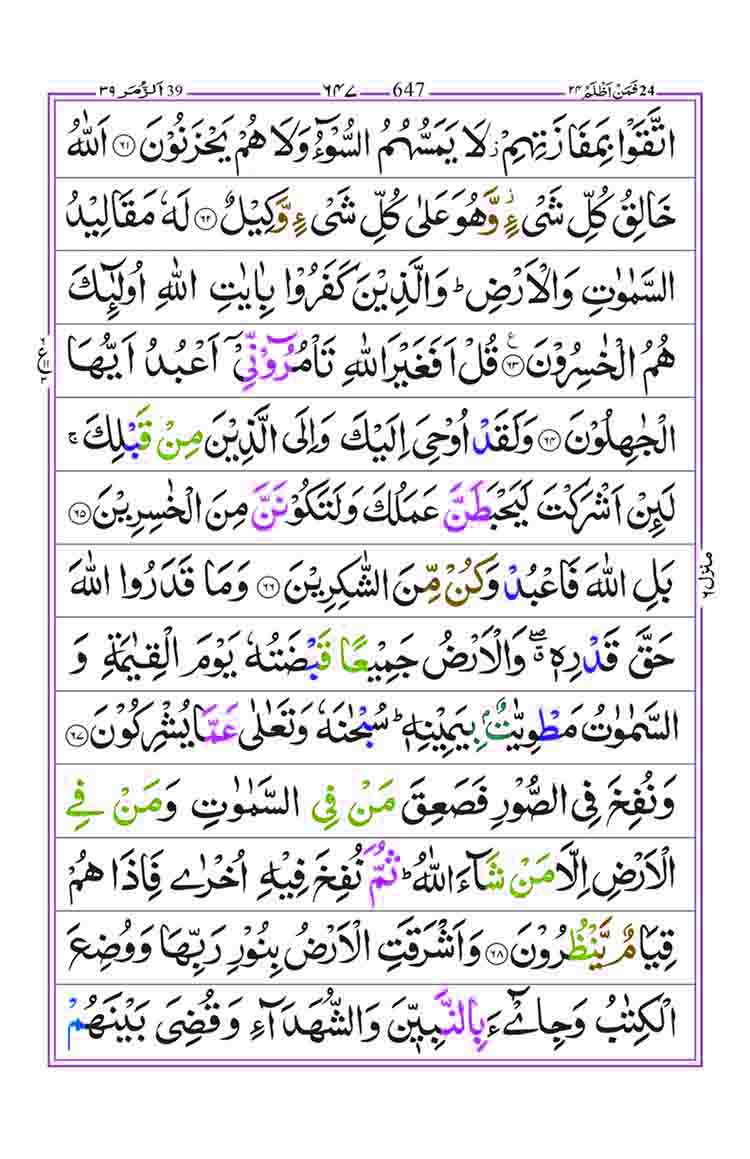 24 فَمَنْ اَظْلَمُ ۲۴ 647 ۶۴۷ 39 اَلزُّمَر ۳۹
اتَّقَوْا بِمَفَازَتِهِمْ ز لَا يَمَسُّهُمُ السُّوْٓءُ وَلَا هُمْ يَحْزَنُوْنَ ۶۱ اَللّٰهُ
خَالِقُ كُلِّ شَیْءٍ ز وَّهُوَ عَلٰى كُلِّ شَیْءٍ وَّكِيْلٌ ۶۲ لَهٗ مَقَالِيْدُ
السَّمٰوٰتِ وَالْاَرْضِ ؕ وَالَّذِيْنَ كَفَرُوْا بِاٰيٰتِ اللّٰهِ اُولٰٓئِكَ
هُمُ الْخٰسِرُوْنَ ۶۳ ع قُلْ اَفَغَيْرَ اللّٰهِ تَاْمُرُوْٓنِّیْٓ اَعْبُدُ اَيُّهَا
الْجٰهِلُوْنَ ۶۴ وَلَقَدْ اُوْحِیَ اِلَيْكَ وَاِلَى الَّذِيْنَ مِنْ قَبْلِكَ ۚ
لَئِنْ اَشْرَكْتَ لَيَحْبَطَنَّ عَمَلُكَ وَلَتَكُوْنَنَّ مِنَ الْخٰسِرِيْنَ ۶۵
بَلِ اللّٰهَ فَاعْبُدْ وَكُنْ مِّنَ الشّٰكِرِيْنَ ۶۶ وَمَا قَدَرُوا اللّٰهَ
حَقَّ قَدْرِهٖ ۖ وَالْاَرْضُ جَمِيْعًا قَبْضَتُهٗ يَوْمَ الْقِيٰمَةِ وَ
السَّمٰوٰتُ مَطْوِيّٰتٌۢ بِيَمِيْنِهٖ ؕ سُبْحٰنَهٗ وَتَعٰلٰى عَمَّا يُشْرِكُوْنَ ۶۷
وَنُفِخَ فِی الصُّوْرِ فَصَعِقَ مَنْ فِی السَّمٰوٰتِ وَمَنْ فِی
الْاَرْضِ اِلَّا مَنْ شَآءَ اللّٰهُ ؕ ثُمَّ نُفِخَ فِيْهِ اُخْرٰى فَاِذَا هُمْ
قِيَامٌ يَّنْظُرُوْنَ ۶۸ وَاَشْرَقَتِ الْاَرْضُ بِنُوْرِ رَبِّهَا وَوُضِعَ
الْكِتٰبُ وَجِایْٓءَ بِالنَّبِيّٖنَ وَالشُّهَدَآءِ وَقُضِیَ بَيْنَهُمْ
منزل ۶